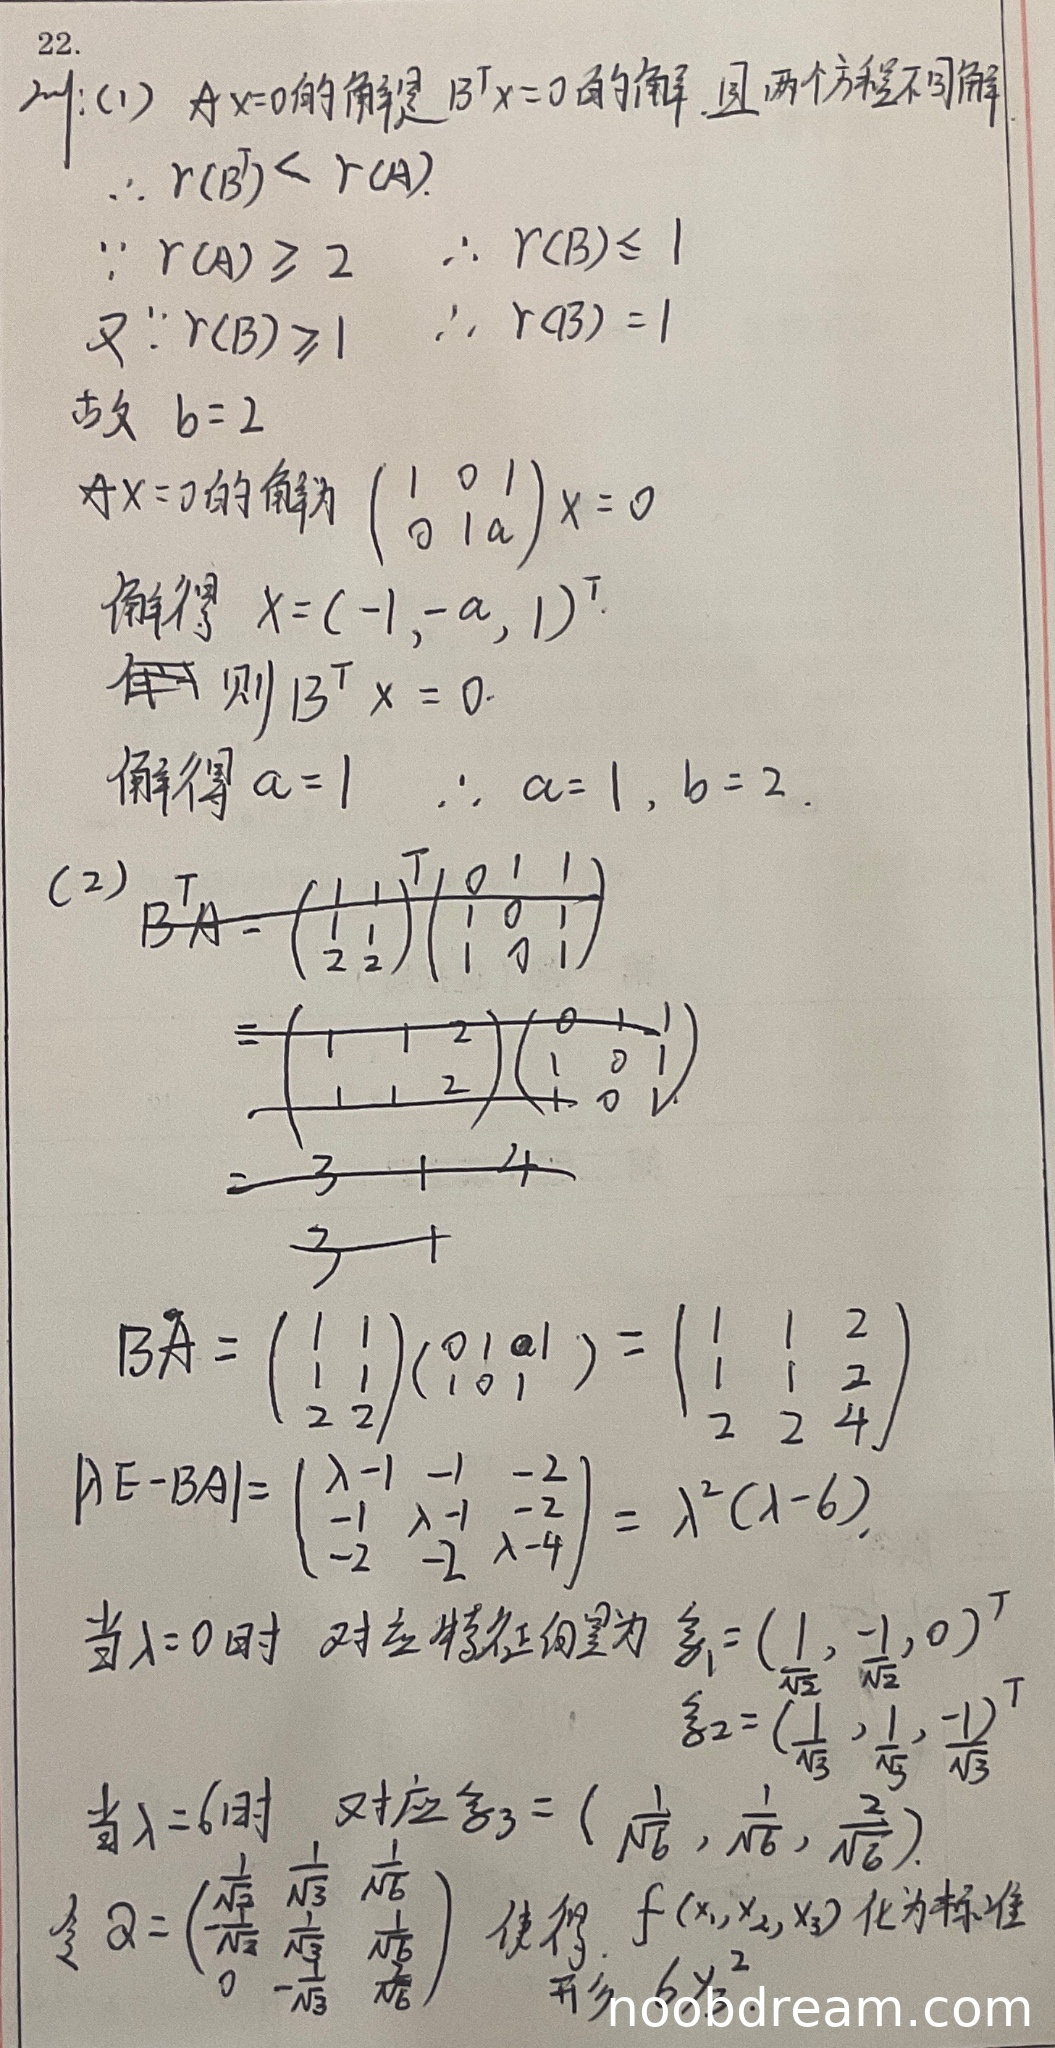 22.
(1) Ax=0的解是BᵀX=0的解.且两个方程不同解
∴ r(Bᵀ) < r(A).
∵ r(A) ≥ 2 ∴ r(B) ≤ 1
又∵ r(B) ≥ 1 ∴ r(B) = 1
故 b=2
AX=0的解为 (1 0 1
0 1 a) X=0
解得 X=(-1,-a,1)ᵀ.
则 Bᵀ x = 0.
解得 a=1 ∴ a=1, b=2.
(2) BᵀA = (1 1
1 1
2 2)ᵀ (0 1 1
1 0 1
1 0 1)
= (1 1 2
1 1 2) (0 1 1
1 0 1
1 0 1)
= 3 1 4
3 1
BA = (1 1
1 1
2 2) (0 1 1
1 0 1) = (1 1 2
1 1 2
2 2 4)
|λE-BA| = (λ-1 -1 -2
-1 λ-1 -2
-2 -2 λ-4) = λ²(λ-6).
当λ=0时 对应特征向量为 ξ₁=(1/√2, -1/√2, 0)ᵀ
ξ₂=(1/√3, 1/√3, -1/√3)ᵀ
当λ=6时 对应ξ₃=(1/√6, 1/√6, 2/√6).
令Q=(1/√2 1/√3 1/√6
-1/√2 1/√3 1/√6
0 -1/√3 2/√6) 使得. f(x₁,x₂,x₃)化为标准
形 6y₃².
noobdream.com